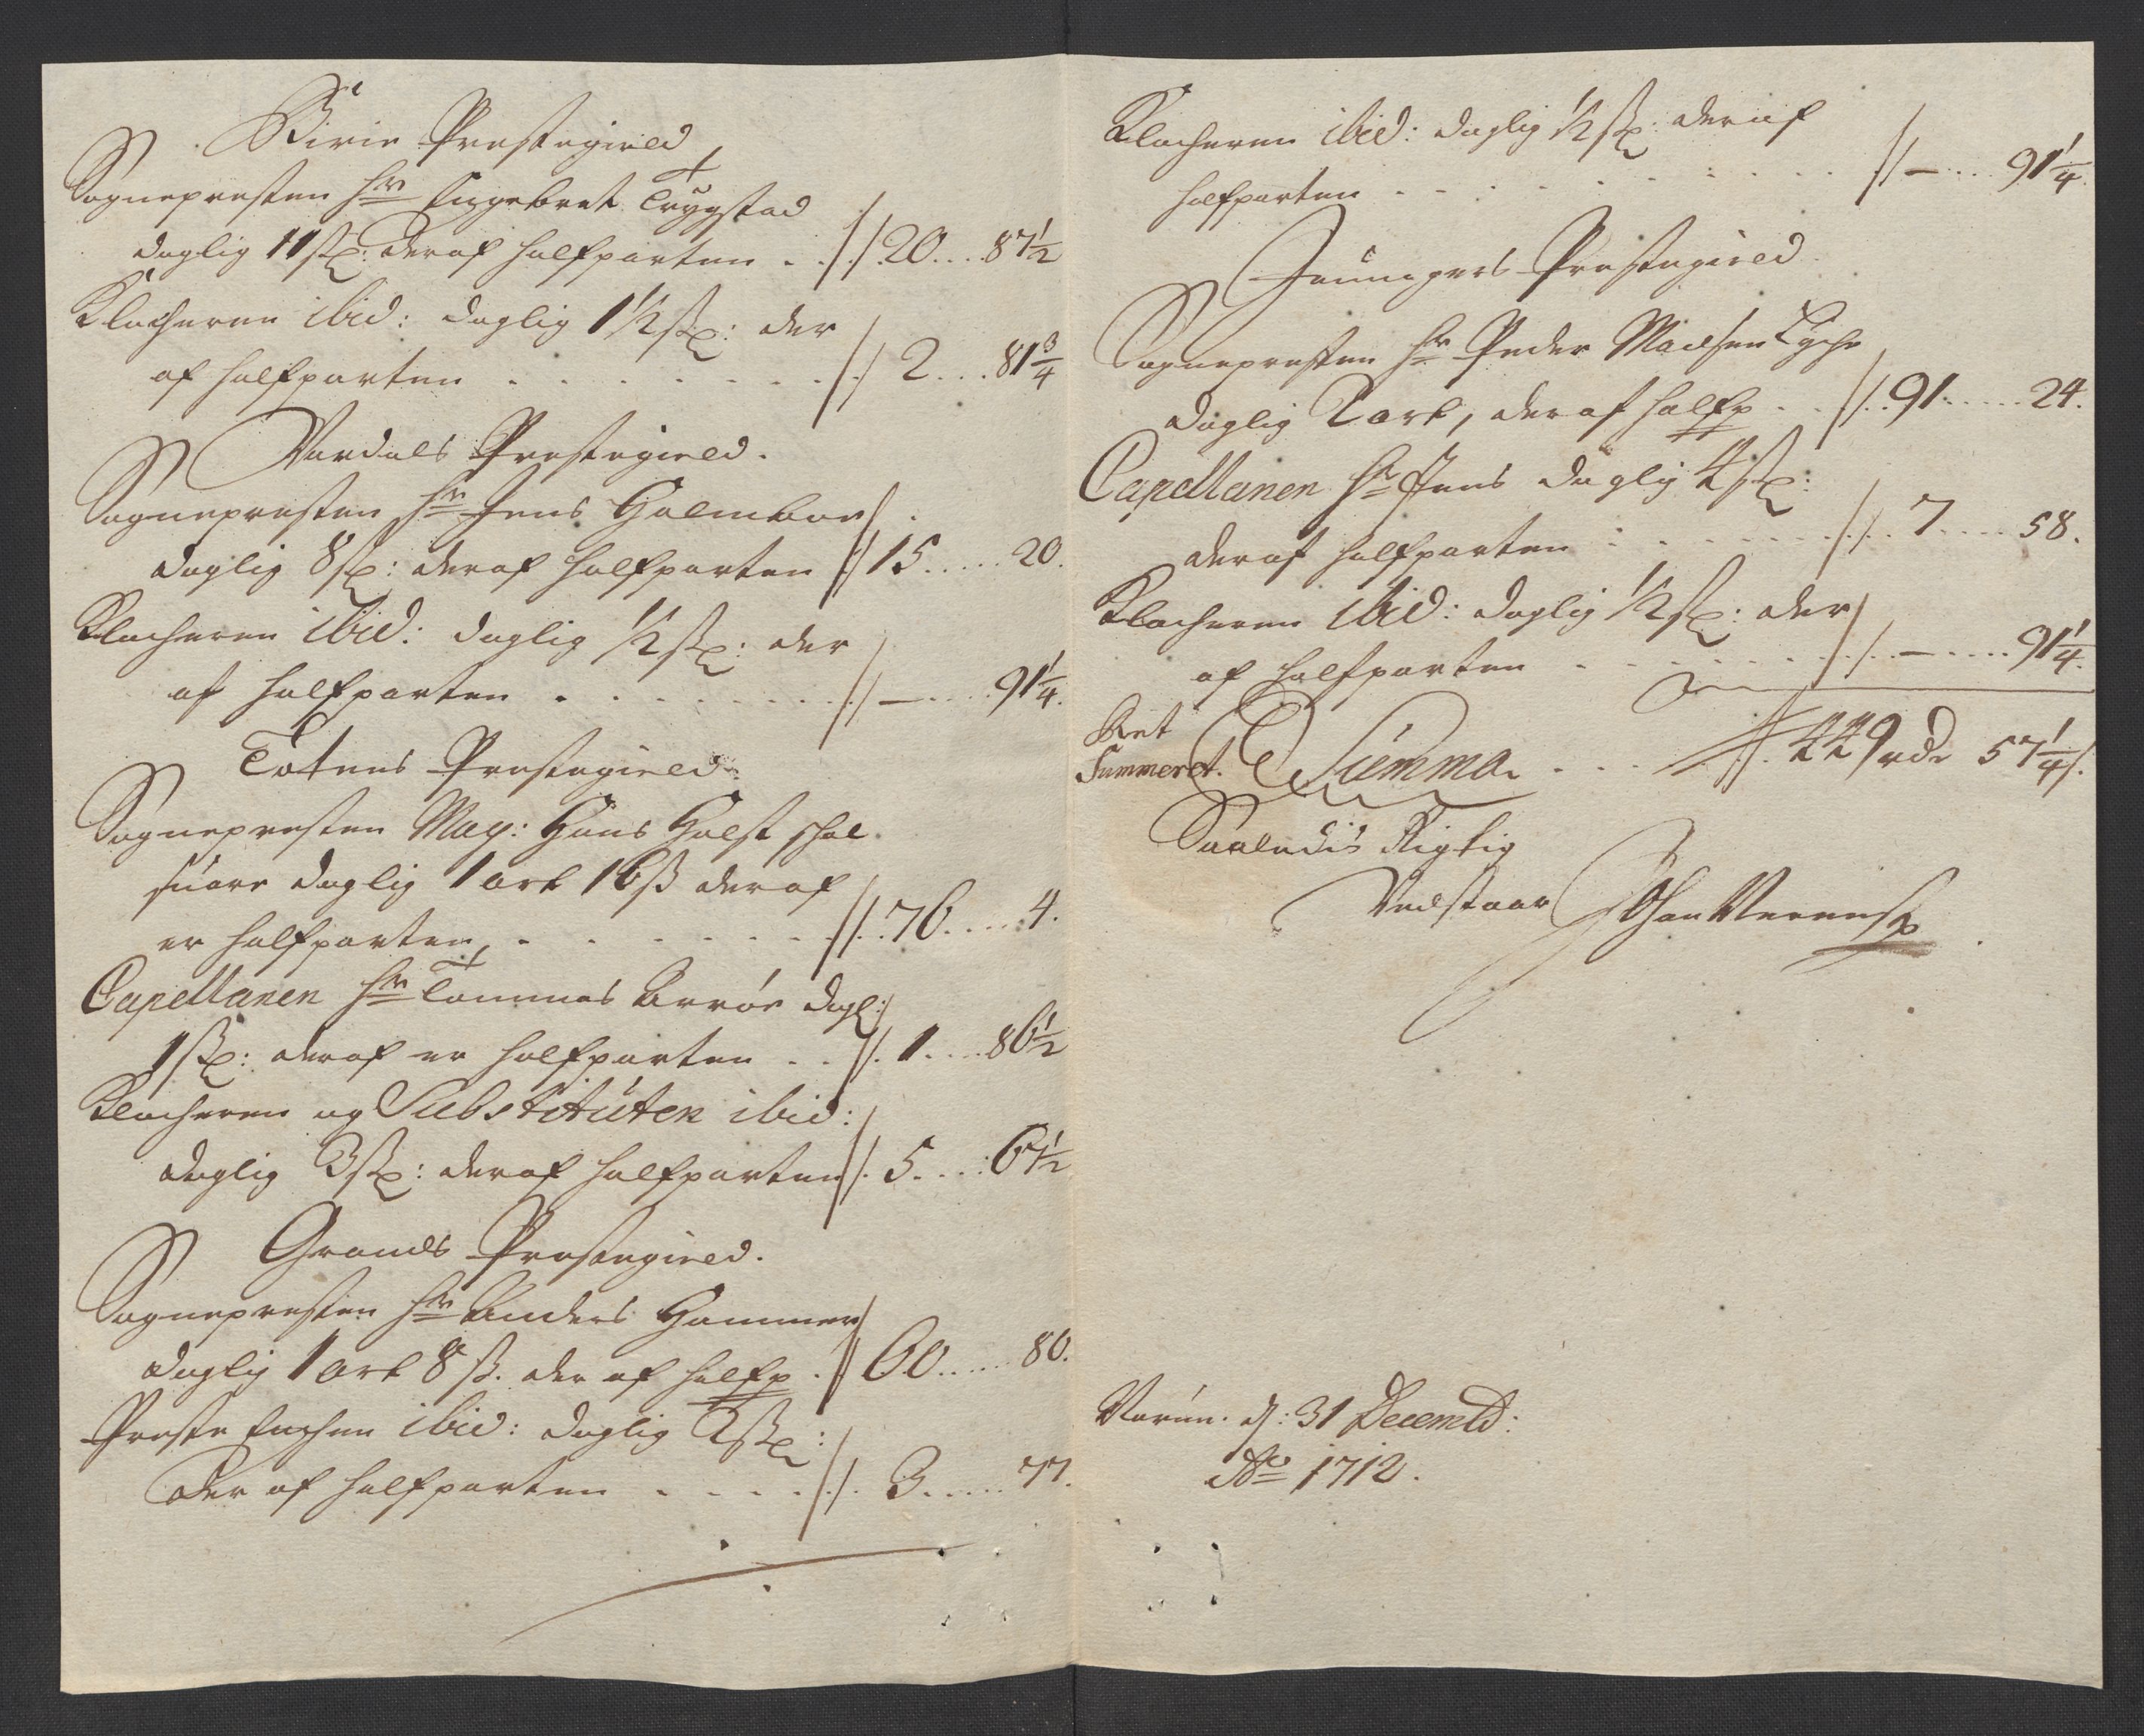 Birie Præstegield
Sognepræsten Hr Engebret Trygstad
daglig 11 sk: deraf halfparten . . // 20....87½
Klocheren ibid: daglig 1½ sk: der
af halfparten . . . . . . . // 2....81¾
Vardals Præstegield.
Sognepræsten Hr Jens Holmboe
daglig 8 sk: deraf halfparten // 15.....20.
Klocheren ibid: daglig ½ sk: der
af halfparten . . . . . . . // —....91¼.
Totens Præstegield
Sognepræsten Mag: Hans Holst skal
suare daglig 1 ort 16 ß deraf
er halfparten, . . . . . . . // 76.....4.
Capellanen Hr Tommas Arrøe dagl:
1 sk: deraf er halfparten . . // 1....86½
Klocheren og Substituten ibid:
daglig 3 sk: deraf halfparten // 5....67½
Grans Præstegield.
Sognepræsten Hr Anders Hammer
daglig 1 ort 8 ß. der af halfp . // 60.....80.
Præste Enchen ibid: daglig 2 sk:
der af halfparten . . . . // 3.....77.
Klocheren ibid: daglig ½ sk: deraf
halfparten . . . . . . . . // —....91¼.
Jeunagers Præstegield
Sognepræsten Hr Peder Madsen Lyche
daglig 2 ort, deraf halfp . . // 91.....24.
Capellanen Hr Jens daglig 4 sk:
deraf halfparten . . . . . . // 7.....58.
Klocheren ibid: daglig ½ sk: der
af halfparten . . . . . . . // —.....91¼.
Ret
Summeret. Summa . . . //. 449 rdr 57¼ ß.
Saaledis Rigtig
Vedstaar Johan Vereensk
Norun. d: 31 Decembr:
Ao 1712.